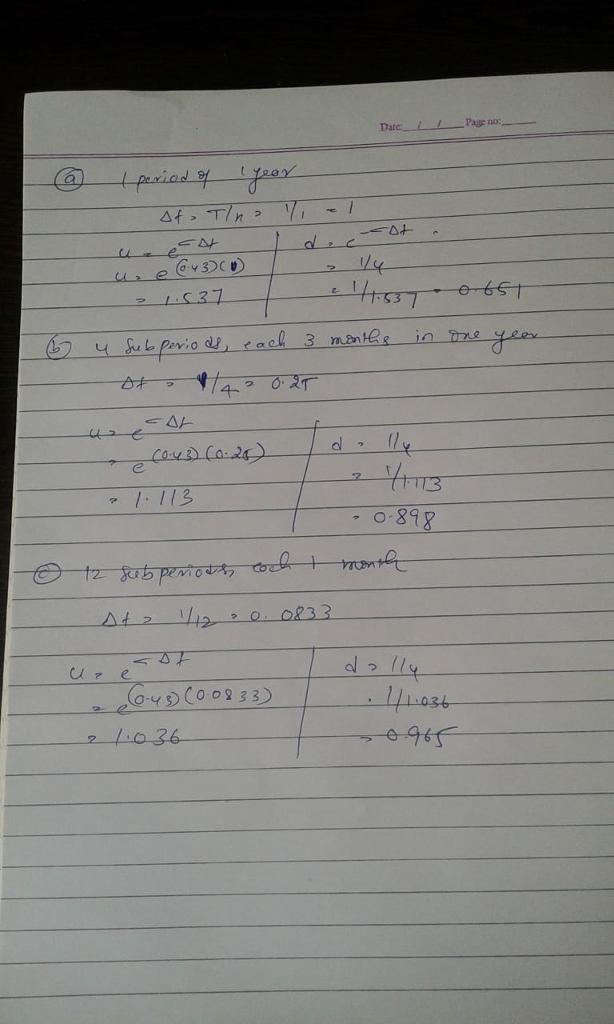 Date: / / Page no:
(a) 1 period of 1 year
Δt = T/n = 1/1 = 1
u = e^σΔt
u = e^(0.43)(1)
= 1.537
d = e^-σΔt
= 1/u
= 1/1.537 = 0.651
(b) 4 Subperiods, each 3 months in one year
Δt = 1/4 = 0.25
u = e^σΔt
= e^(0.43)(0.25)
= 1.113
d = 1/u
= 1/1.113
= 0.898
(c) 12 subperiods, each 1 month
Δt = 1/12 = 0.0833
u = e^σΔt
= e^(0.43)(0.0833)
= 1.036
d = 1/u
= 1/1.036
= 0.965